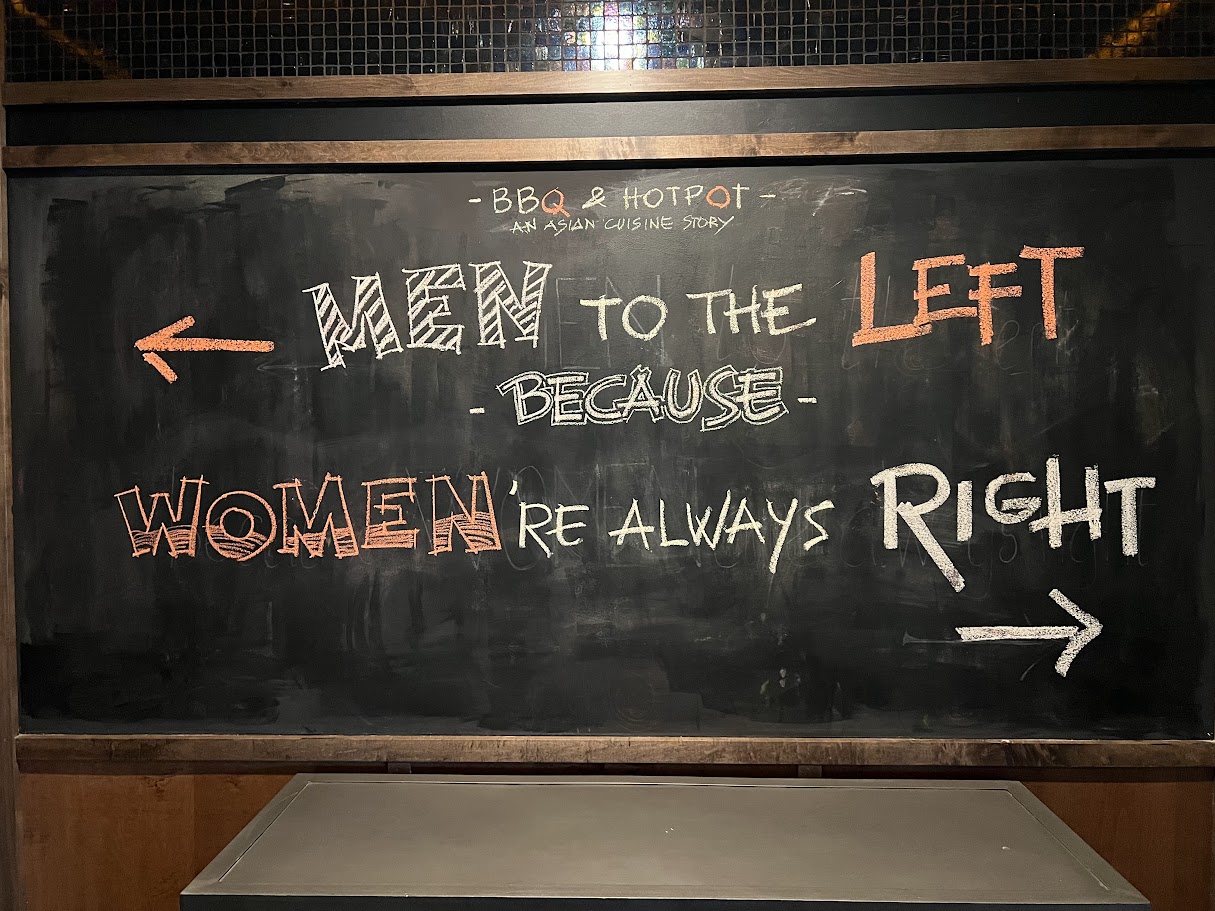 - BBQ & HOTPOT -
AN ASIAN CUISINE STORY
← MEN TO THE LEFT
- BECAUSE -
WOMEN'RE ALWAYS RIGHT
→